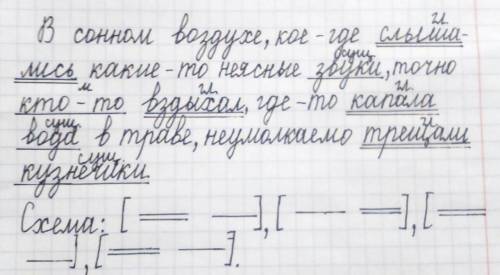 В сонном воздухе, кое-где слыша-
лись какие-то неясные звуки, точно
кто-то вздыхал, где-то капала
вода в траве, неумолкаемо трещали
кузнечики.
Схема: [ ═ — ], [ — ═ ], [ ═
— ], [ ═ — ].